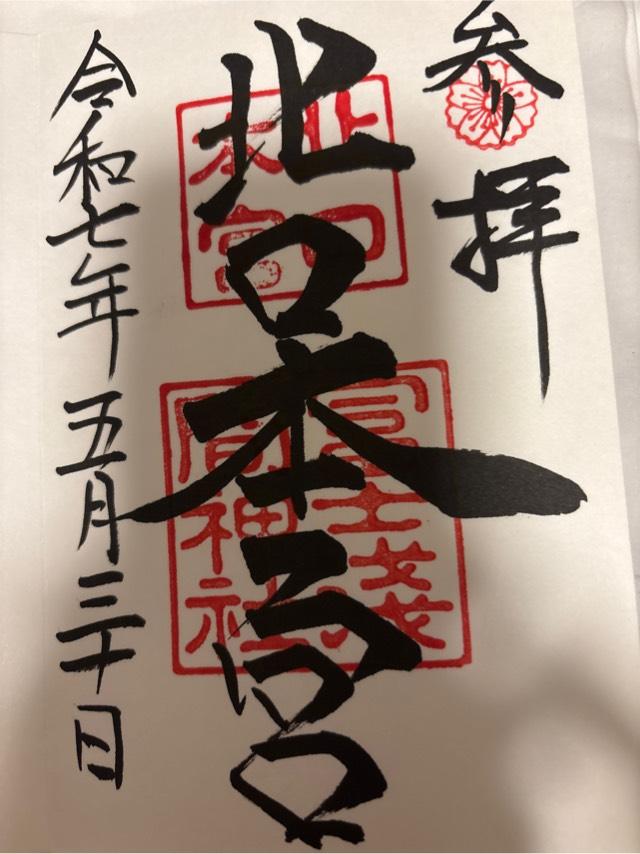 参拝
北口本宮
北口
本宮
冨士浅
間神社
令和七年五月三十日